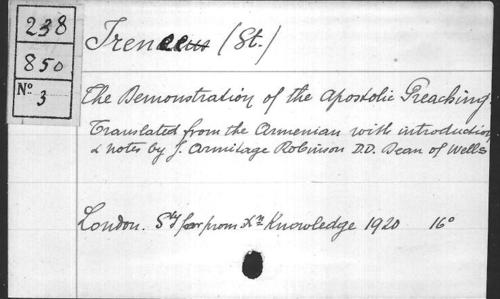 238
850
No 3
Irenaeus (St.)
The Demonstration of the Apostolic Preaching
Translated from the Armenian with introduction
& notes by J. Armitage Robinson D.D. Dean of Wells
London. Sty for prom. Xn Knowledge 1920 16o